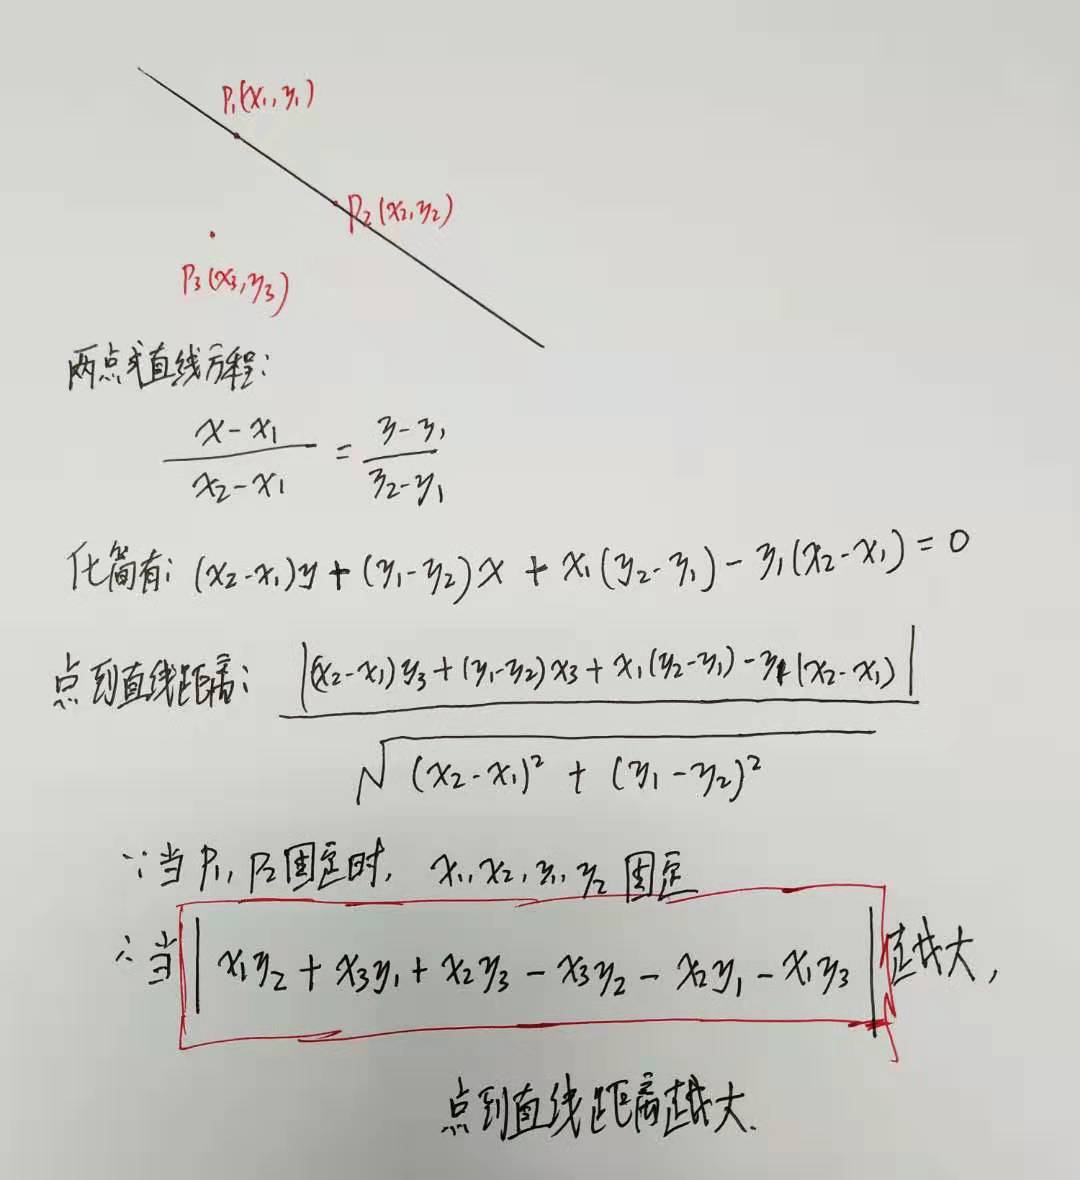 P₁(x₁,y₁)
P₂(x₂,y₂)
P₃(x₃,y₃)
两点式直线方程:
(x-x₁)/(x₂-x₁) = (y-y₁)/(y₂-y₁)
化简有: (x₂-x₁)y + (y₁-y₂)x + x₁(y₂-y₁) - y₁(x₂-x₁) = 0
点到直线距离: |(x₂-x₁)y₃ + (y₁-y₂)x₃ + x₁(y₂-y₁) - y₁(x₂-x₁)| / √((x₂-x₁)² + (y₁-y₂)²)
∵当 P₁, P₂ 固定时, x₁, x₂, y₁, y₂ 固定
∴当 |x₁y₂ + x₃y₁ + x₂y₃ - x₃y₂ - x₂y₁ - x₁y₃| 值越大,
点到直线距离越大.